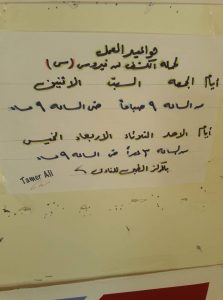 مواعيد العمل
لحملة الكشف عن فيروس (س)
أيام الجمعه السبت الاثنين
من الساعه ٩ صباحاً حتى الساعه ٩ مساء
أيام الاحد الثلاثاء الاربعاء الخميس
من الساعه ٣ عصراً حتى الساعه ٩ مساء
بالمركز الطبى للنادى
Tamer Ali